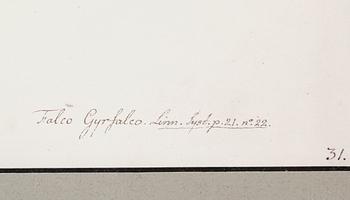 Falco Gyrfalco. Linn. Syst. p. 21. n° 22.
31.